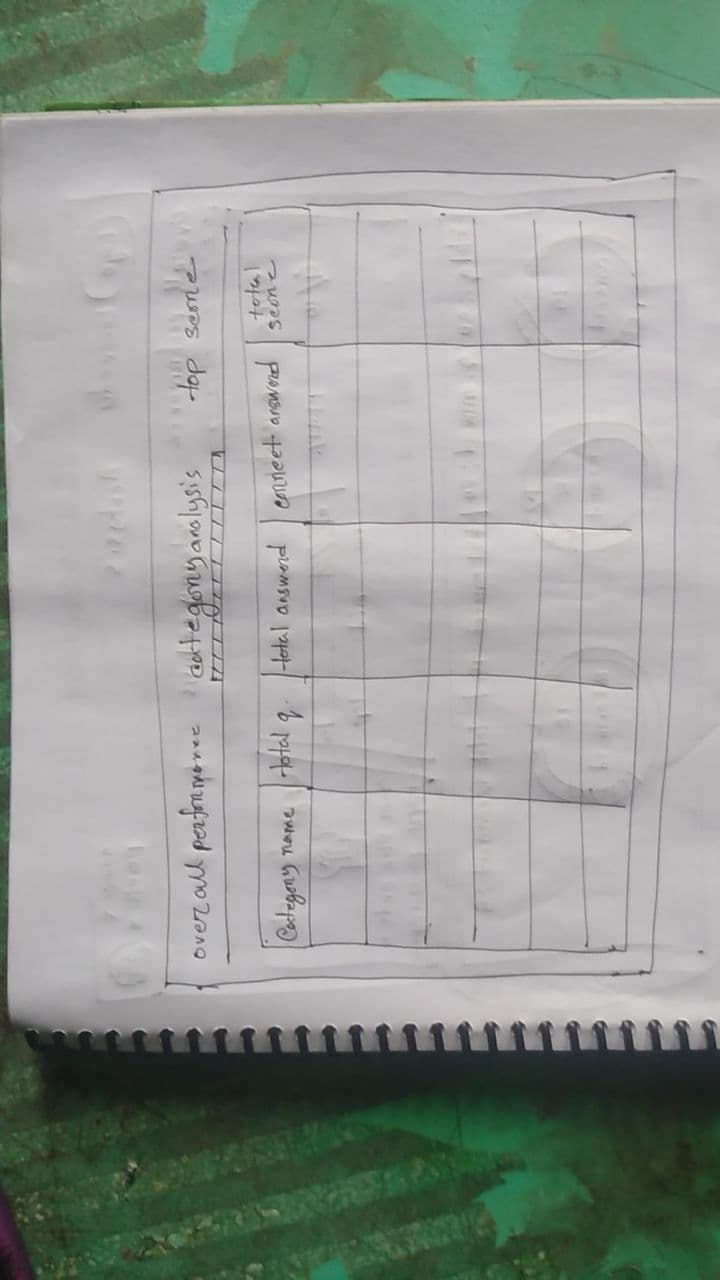 overall performance category analysis top score
Category name total q. total answerd correct answerd total score